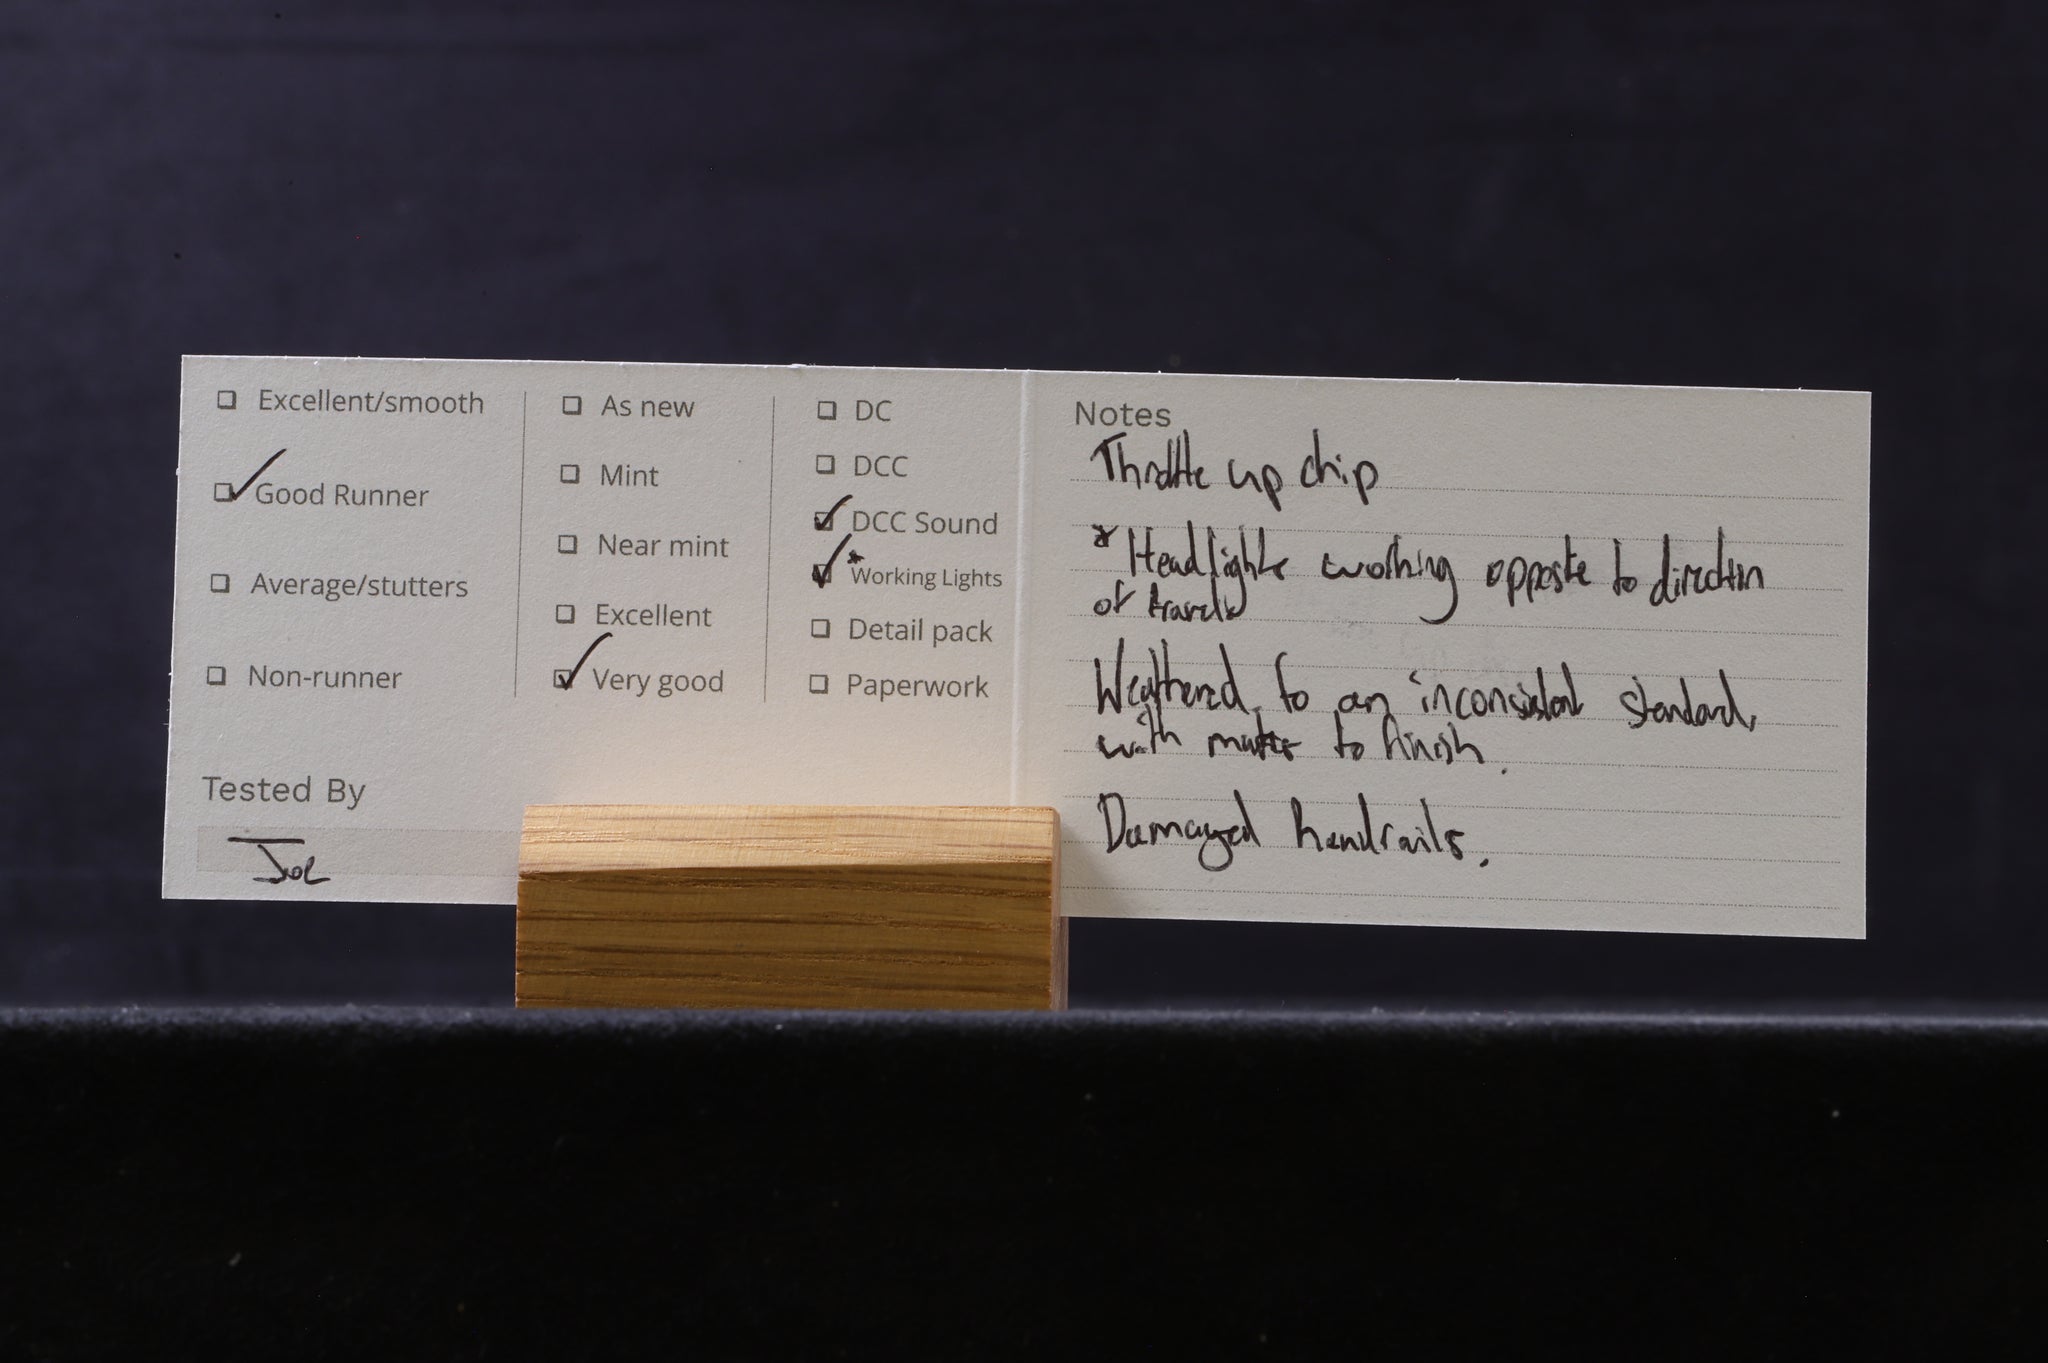 Excellent/smooth
Good Runner
Average/stutters
Non-runner
Tested By
Joe
As new
Mint
Near mint
Excellent
Very good
DC
DCC
DCC Sound
*Working Lights
Detail pack
Paperwork
Notes
Throttle up chip
* Headlights working opposite to direction
of travel
Weathered to an inconsistent standard,
with to finish.
Damaged handrails.